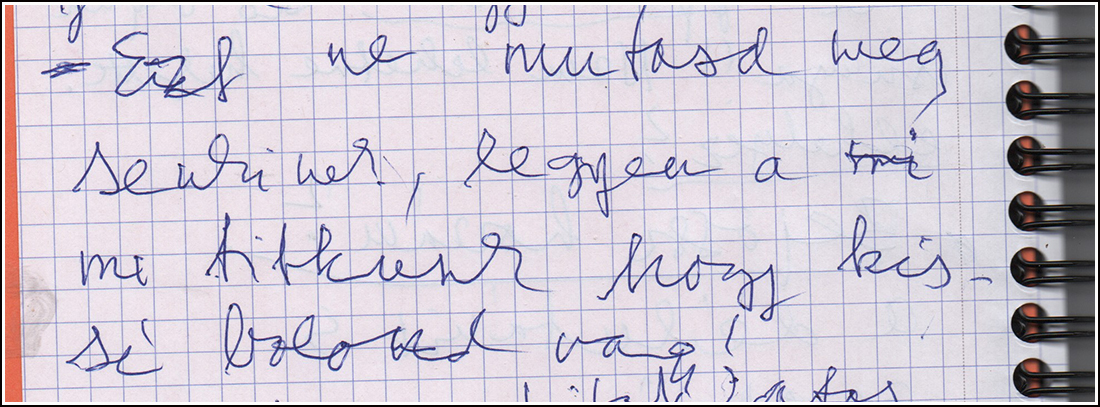 - Ezt ne mutasd meg
senkinek, legyen a mi
mi titkunk hogy kis-
sé bolond vag!